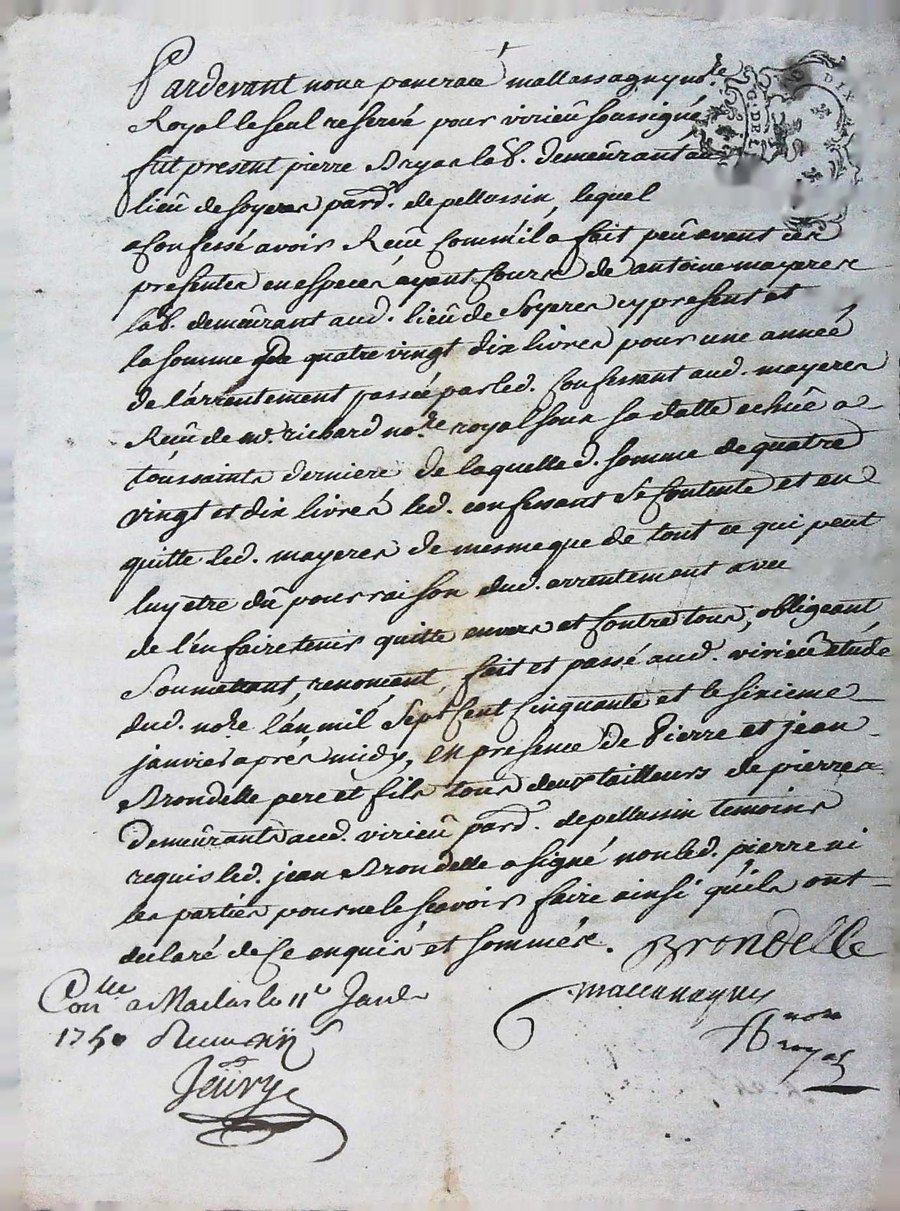 Pardevant nous pancrace mallassagny no.re
Royal le seul reservé pour virieû soussigné
fut present pierre Bryas lab. demeûrant au
lieû de soyeres parr. de pellussin, lequel
a Confessé avoir Reçû Comm'il a fait peû avant ces
presentes en especes ayant Cours de antoine mayeres
lab. demeûrant aud. lieû de Soyeres cy present et
la somme De quatre vingt dix livres pour une année
de l'arrentement passé par led. Confessant aud. mayeres
Reçû de mr. richard no.re royal sous sa datte echüe a
toussaints derniere de laquelle d. somme de quatre
vingt et dix livres led. confessant Se Contente et en
quitte led. mayeres de mesme que de tout ce qui peut
luy etre dû pour raison dud. arrentement avec
de l'en faire tenir quitte envers et Contre tous, obligeant
Soumettant, renonceant, fait et passé aud. virieû etude
dud. no.re l'an mil Sept Cent Cinquante et le sixieme
janvier aprés midy, en presence de Pierre et jean
Brondelle pere et fils tous deux tailleurs de pierres
demeûrants aud. virieû parr. de pellussin temoins
requis led. jean Brondelle a signé non led. pierre ni
les parties pour ne le scavoir faire ainsi qu'ils ont
declaré de Ce enquis et sommés. Brondelle
Conlle a Maclas le 11e Janv.
mallassagny
1750 Receu
no.re
royal
Jeûry
G. DE L
DIX